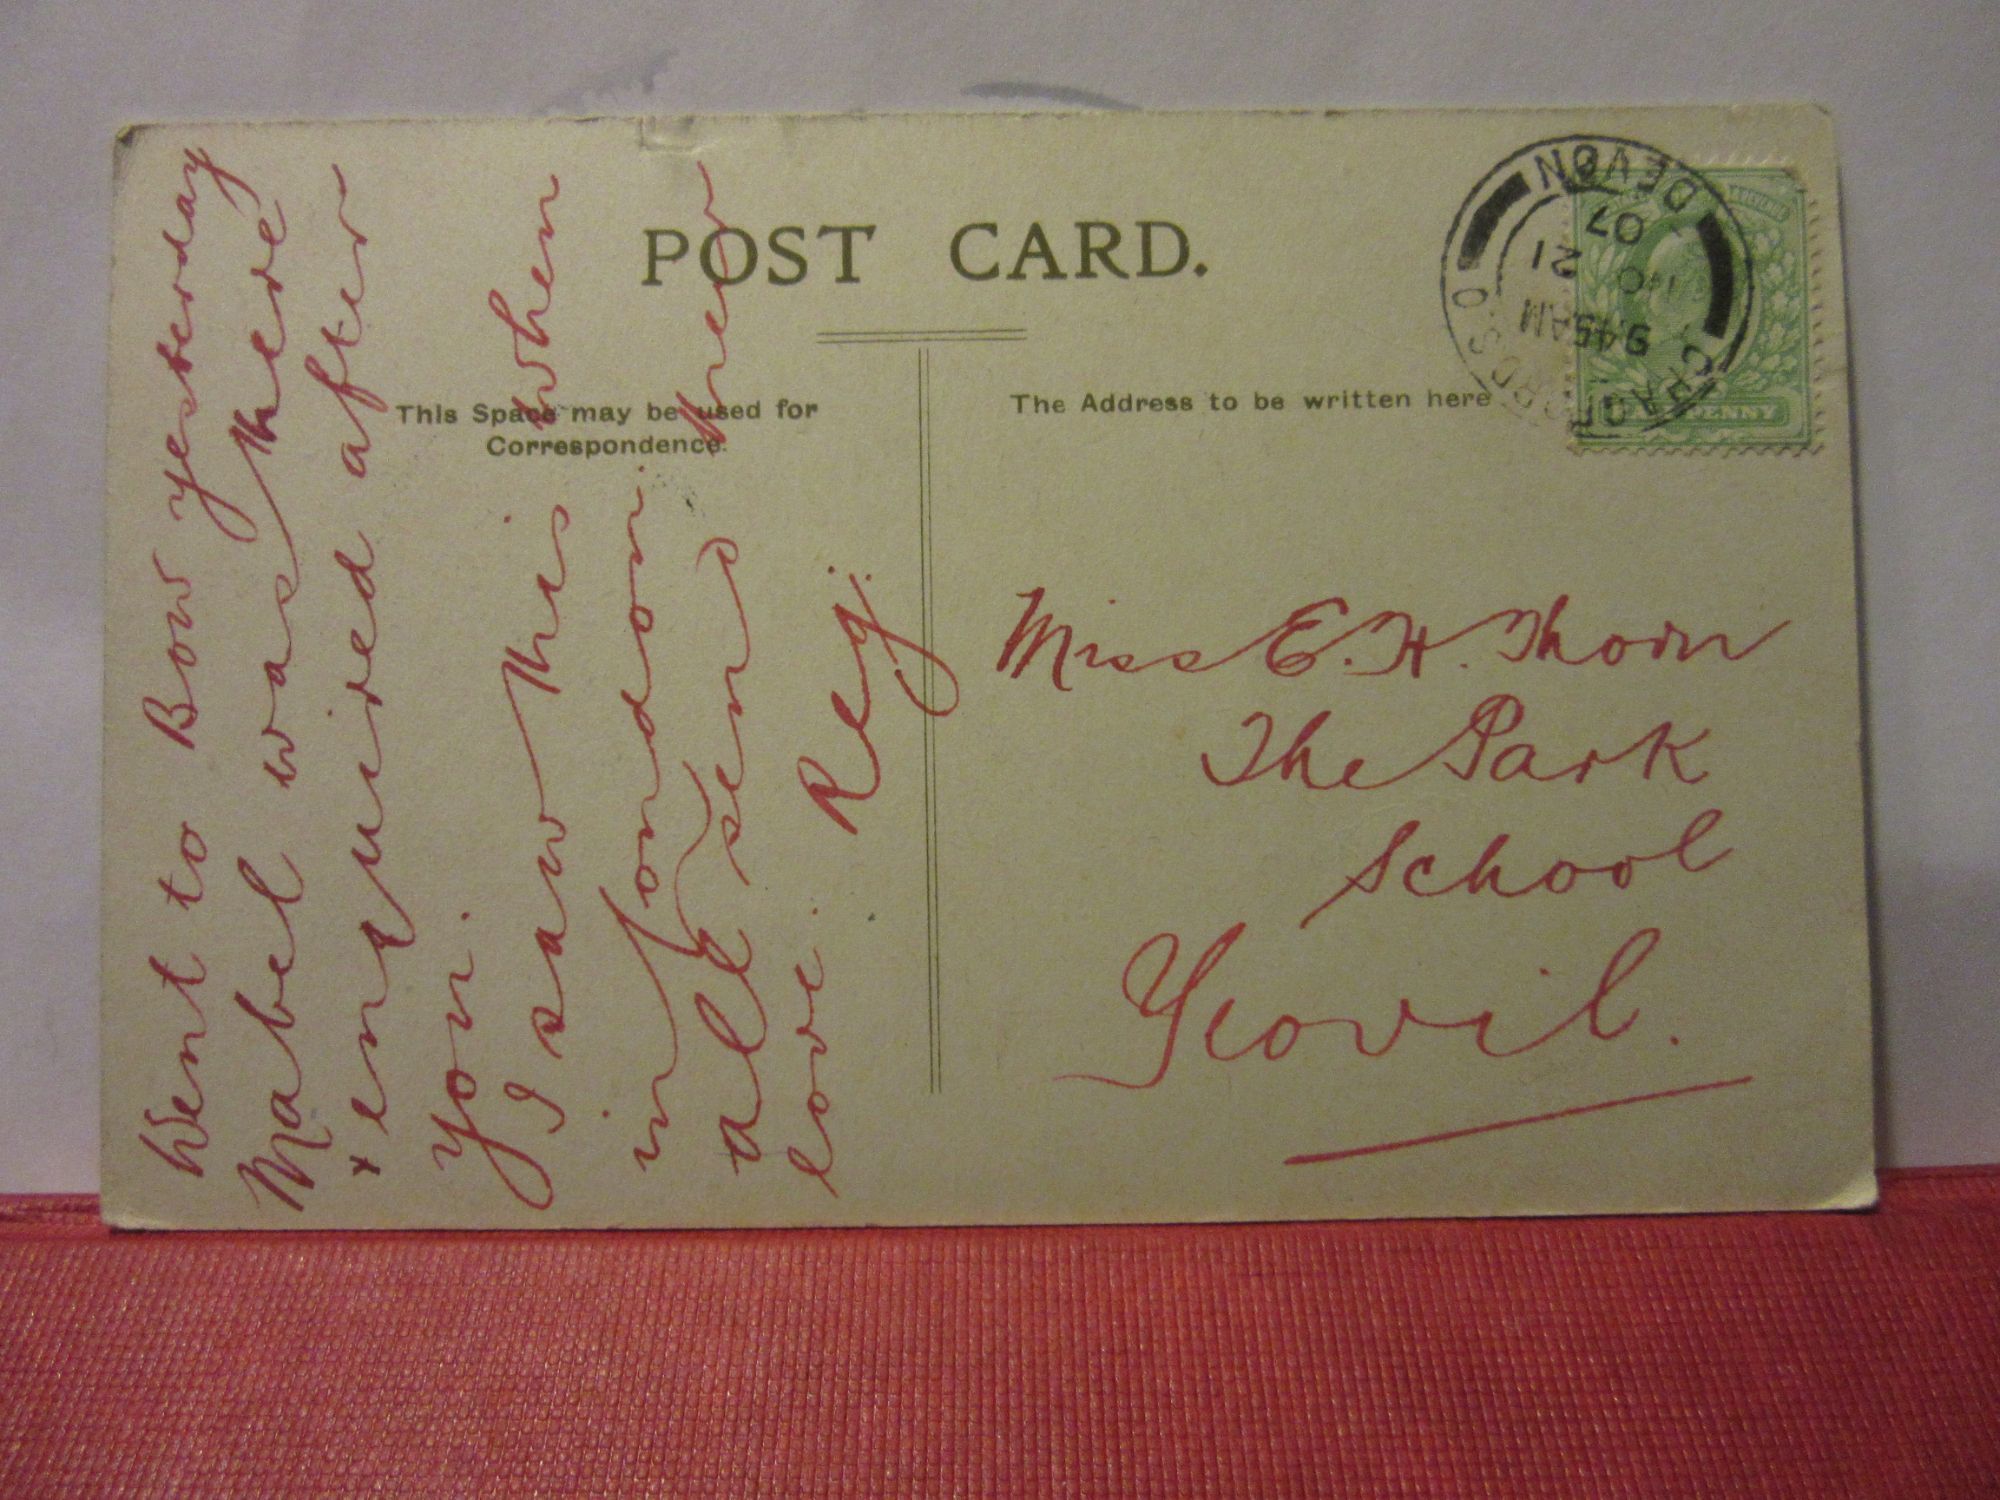 POST CARD.
This Space may be used for
Correspondence.
The Address to be written here
Went to Bow yesterday
Mabel was there
+ enquired after
you.
I saw this when
in London.
all send their
love. Reg.
Miss E. H. Thorn
The Park
School
Yeovil.
DEVON
9.45AM
21
07